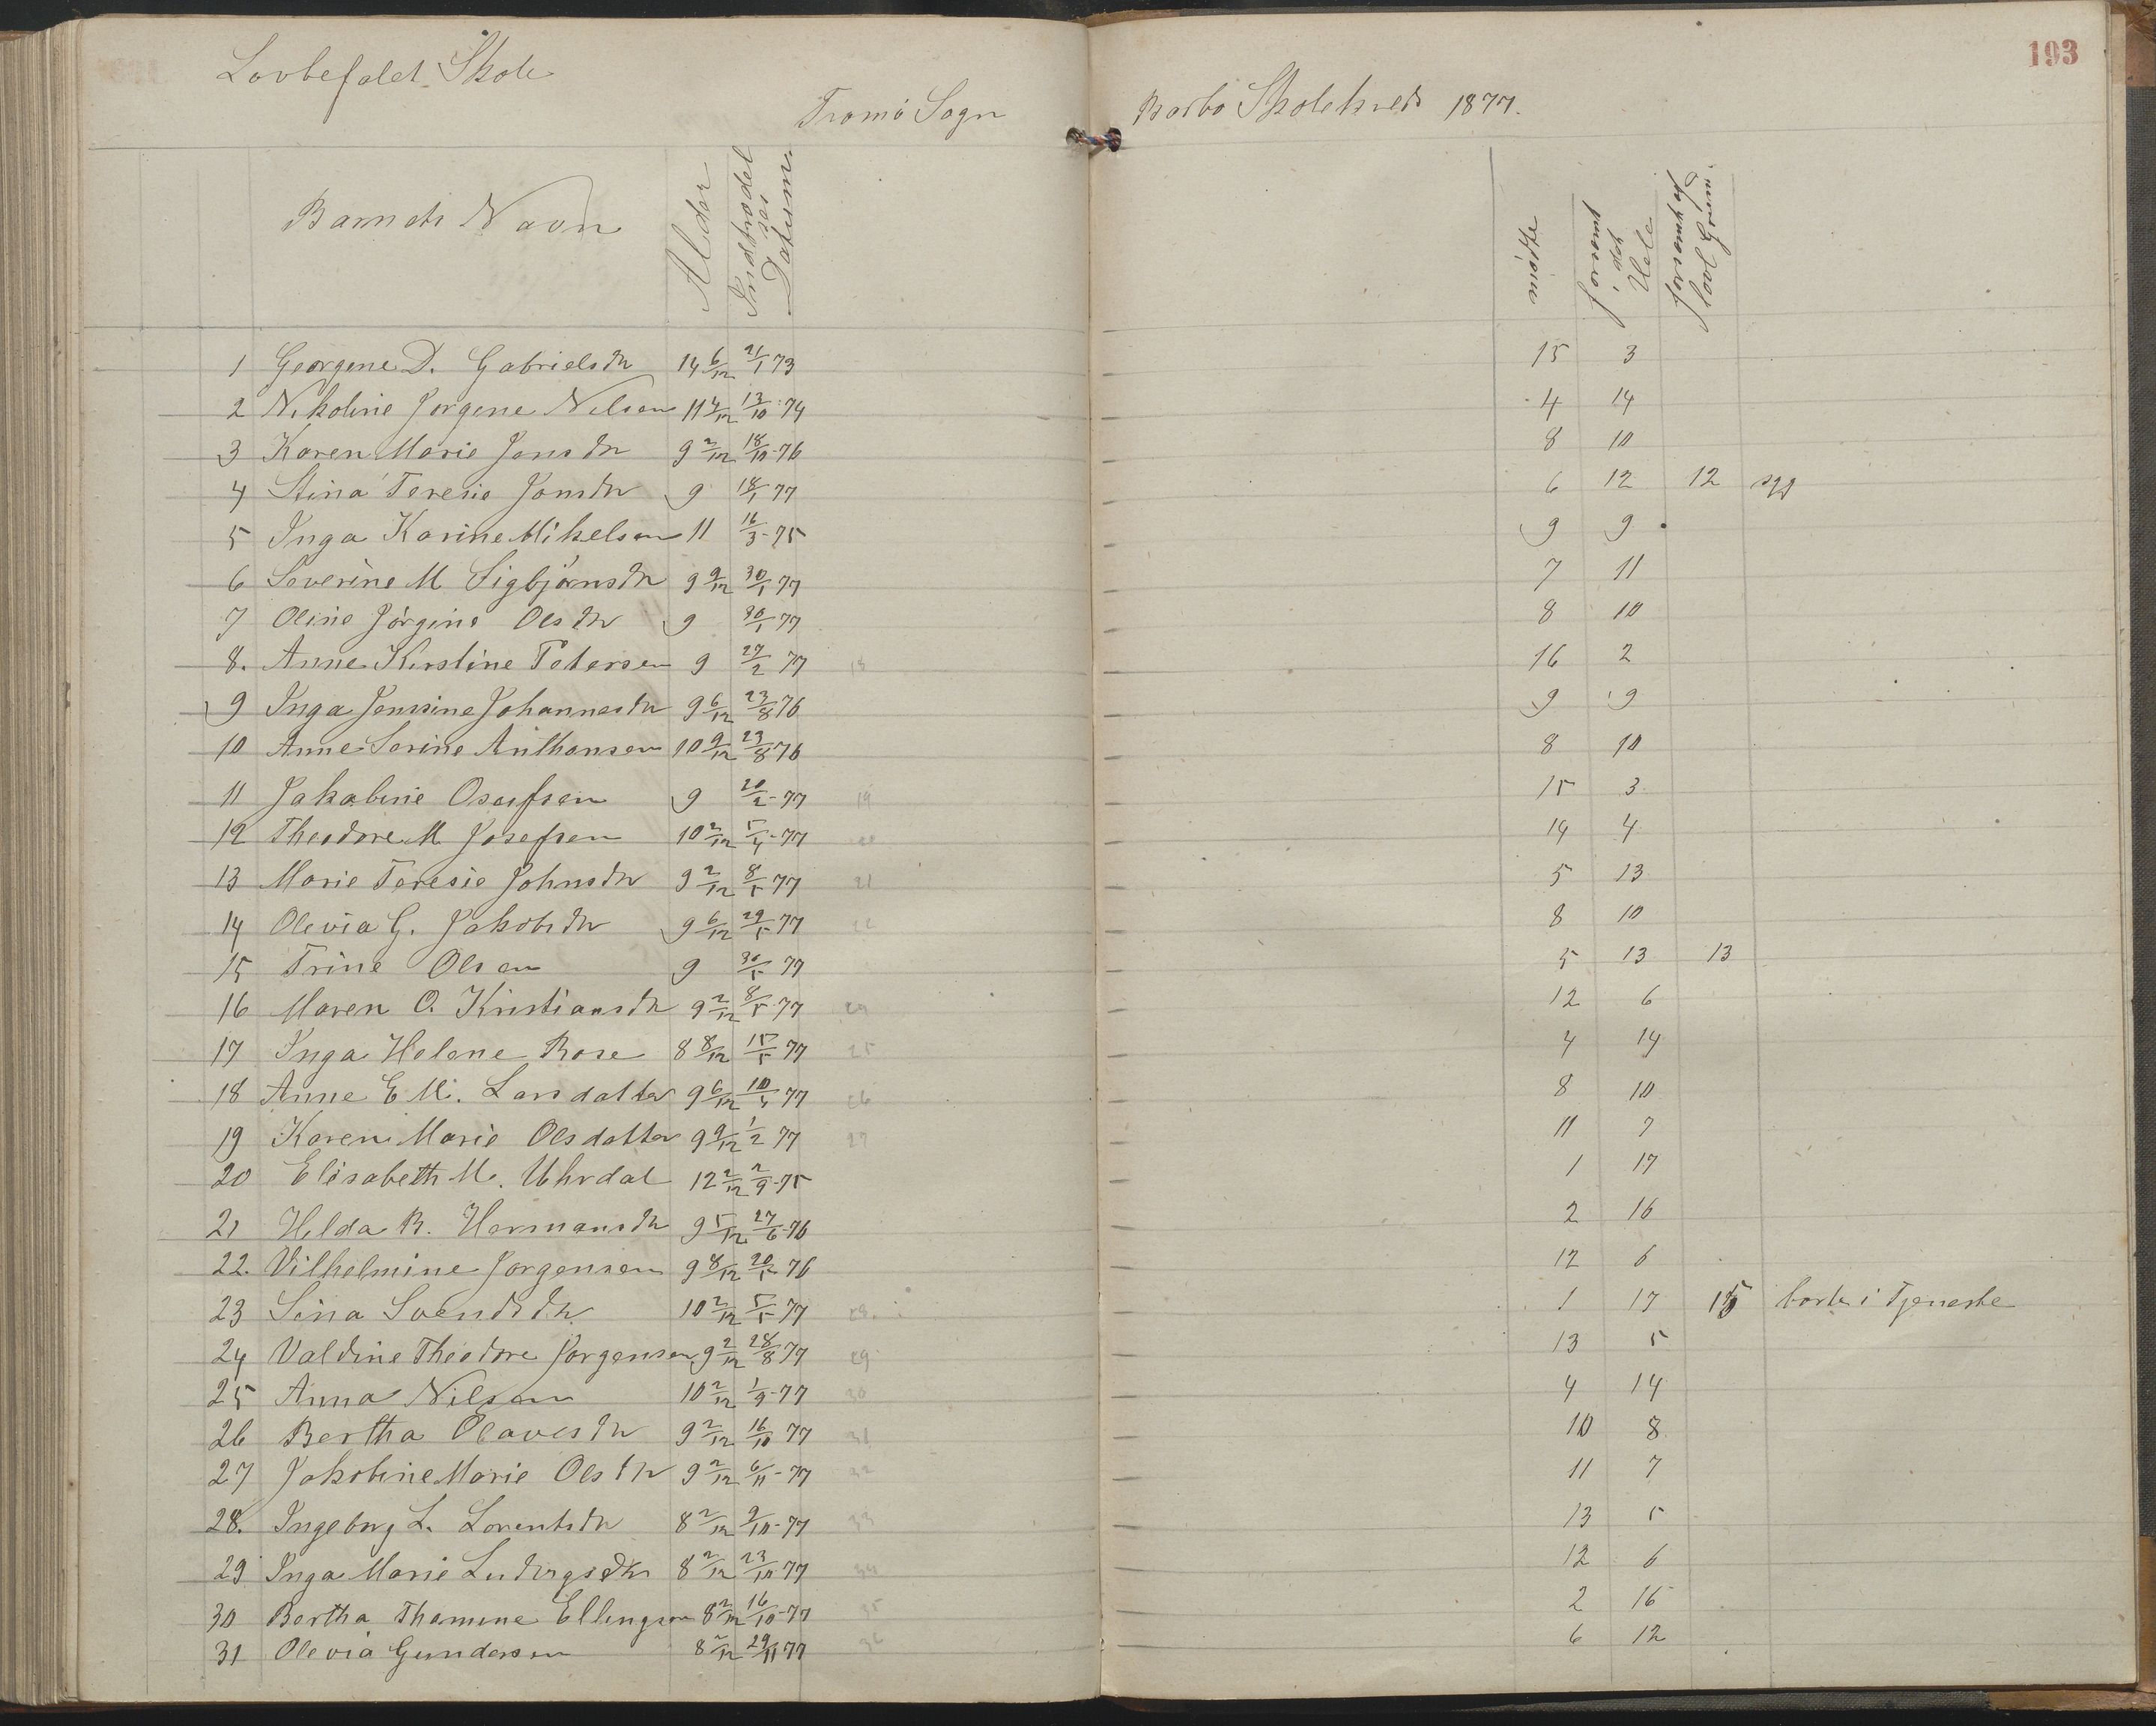 193
Lovbefalet Skole
Tromö Sogn Barbo Skolekreds 1877.
Barnets Navn Alder Indtrædelses Datum mødte forsømt i det Hele forsømt af lovl Grund.
1 Georgene D. Gabrielsdtr 14 6/12 21/1 73 15 3
2 Nikoline Jorgine Nilsen 11 4/12 13/10 74 4 14
3 Karen Marie Jonsdtr 9 2/12 18/10 76 8 10
4 Stina Teresie Jonsdtr 9 18/1 77 6 12 12 syg
5 Inga Karine Mikelsen 11 16/3-75 9 9
6 Severine M Sigbjörnsdtr 9 9/12 30/1 77 7 11
7 Oline Jörgine Olsdtr 9 30/1 77 8 10
8. Anne Kirstine Petersen 9 27/2 77 18 16 2
9 Inga Jenssine Johannesdtr 9 6/12 23/8 76 9 9
10 Anne Serine Anthonsen 10 9/12 23/8 76 8 10
11 Jakobine Osufsen 9 20/2-77 19 15 3
12 Theodore M Josefsen 10 2/12 5/4-77 20 14 4
13 Marie Teresie Johnsdtr 9 2/12 8/5 77 21 5 13
14 Olevia G. Jakobsdtr 9 6/12 29/5 77 22 8 10
15 Trine Olsen 9 30/5 77 5 13 13
16 Maren O. Kristiansdtr 9 2/12 8/5 77 24 12 6
17 Inga Helene Rose 8 8/12 15/5 77 25 4 14
18 Anne E M. Larsdatter 9 6/12 10/4 77 26 8 10
19 Karen Marie Olsdatter 9 9/12 1/2 77 27 11 7
20 Elisabeth M. Uhrdal 12 2/12 2/9-75 1 17
21 Hilda B. Hermansdtr 9 5/12 27/6-76 2 16
22. Vilhelmine Jorgensen 9 8/12 20/5 76 12 6
23 Sina Svendsdtr 10 2/12 5/5 77 28. 1 17 15 borte i Tjeneste
24 Valdine Theodore Jorgensen 9 2/12 28/8 77 29 13 5
25 Anna Nilsen 10 2/12 1/9-77 30 4 14
26 Bertha Olavesdtr 9 2/12 16/10 77 31 10 8
27 Jakobine Marie Olsdtr 9 2/12 6/11-77 32 11 7
28. Ingeborg L. Lorentsdtr 8 2/12 9/10-77 33 13 5
29 Inga Marie Ludvigsdtr 8 2/12 23/10-77 34 12 6
30 Bertha Thomine Ellingsen 8 2/12 16/10-77 35 2 16
31 Olevia Gundersen 8 2/12 29/11 77 36 6 12